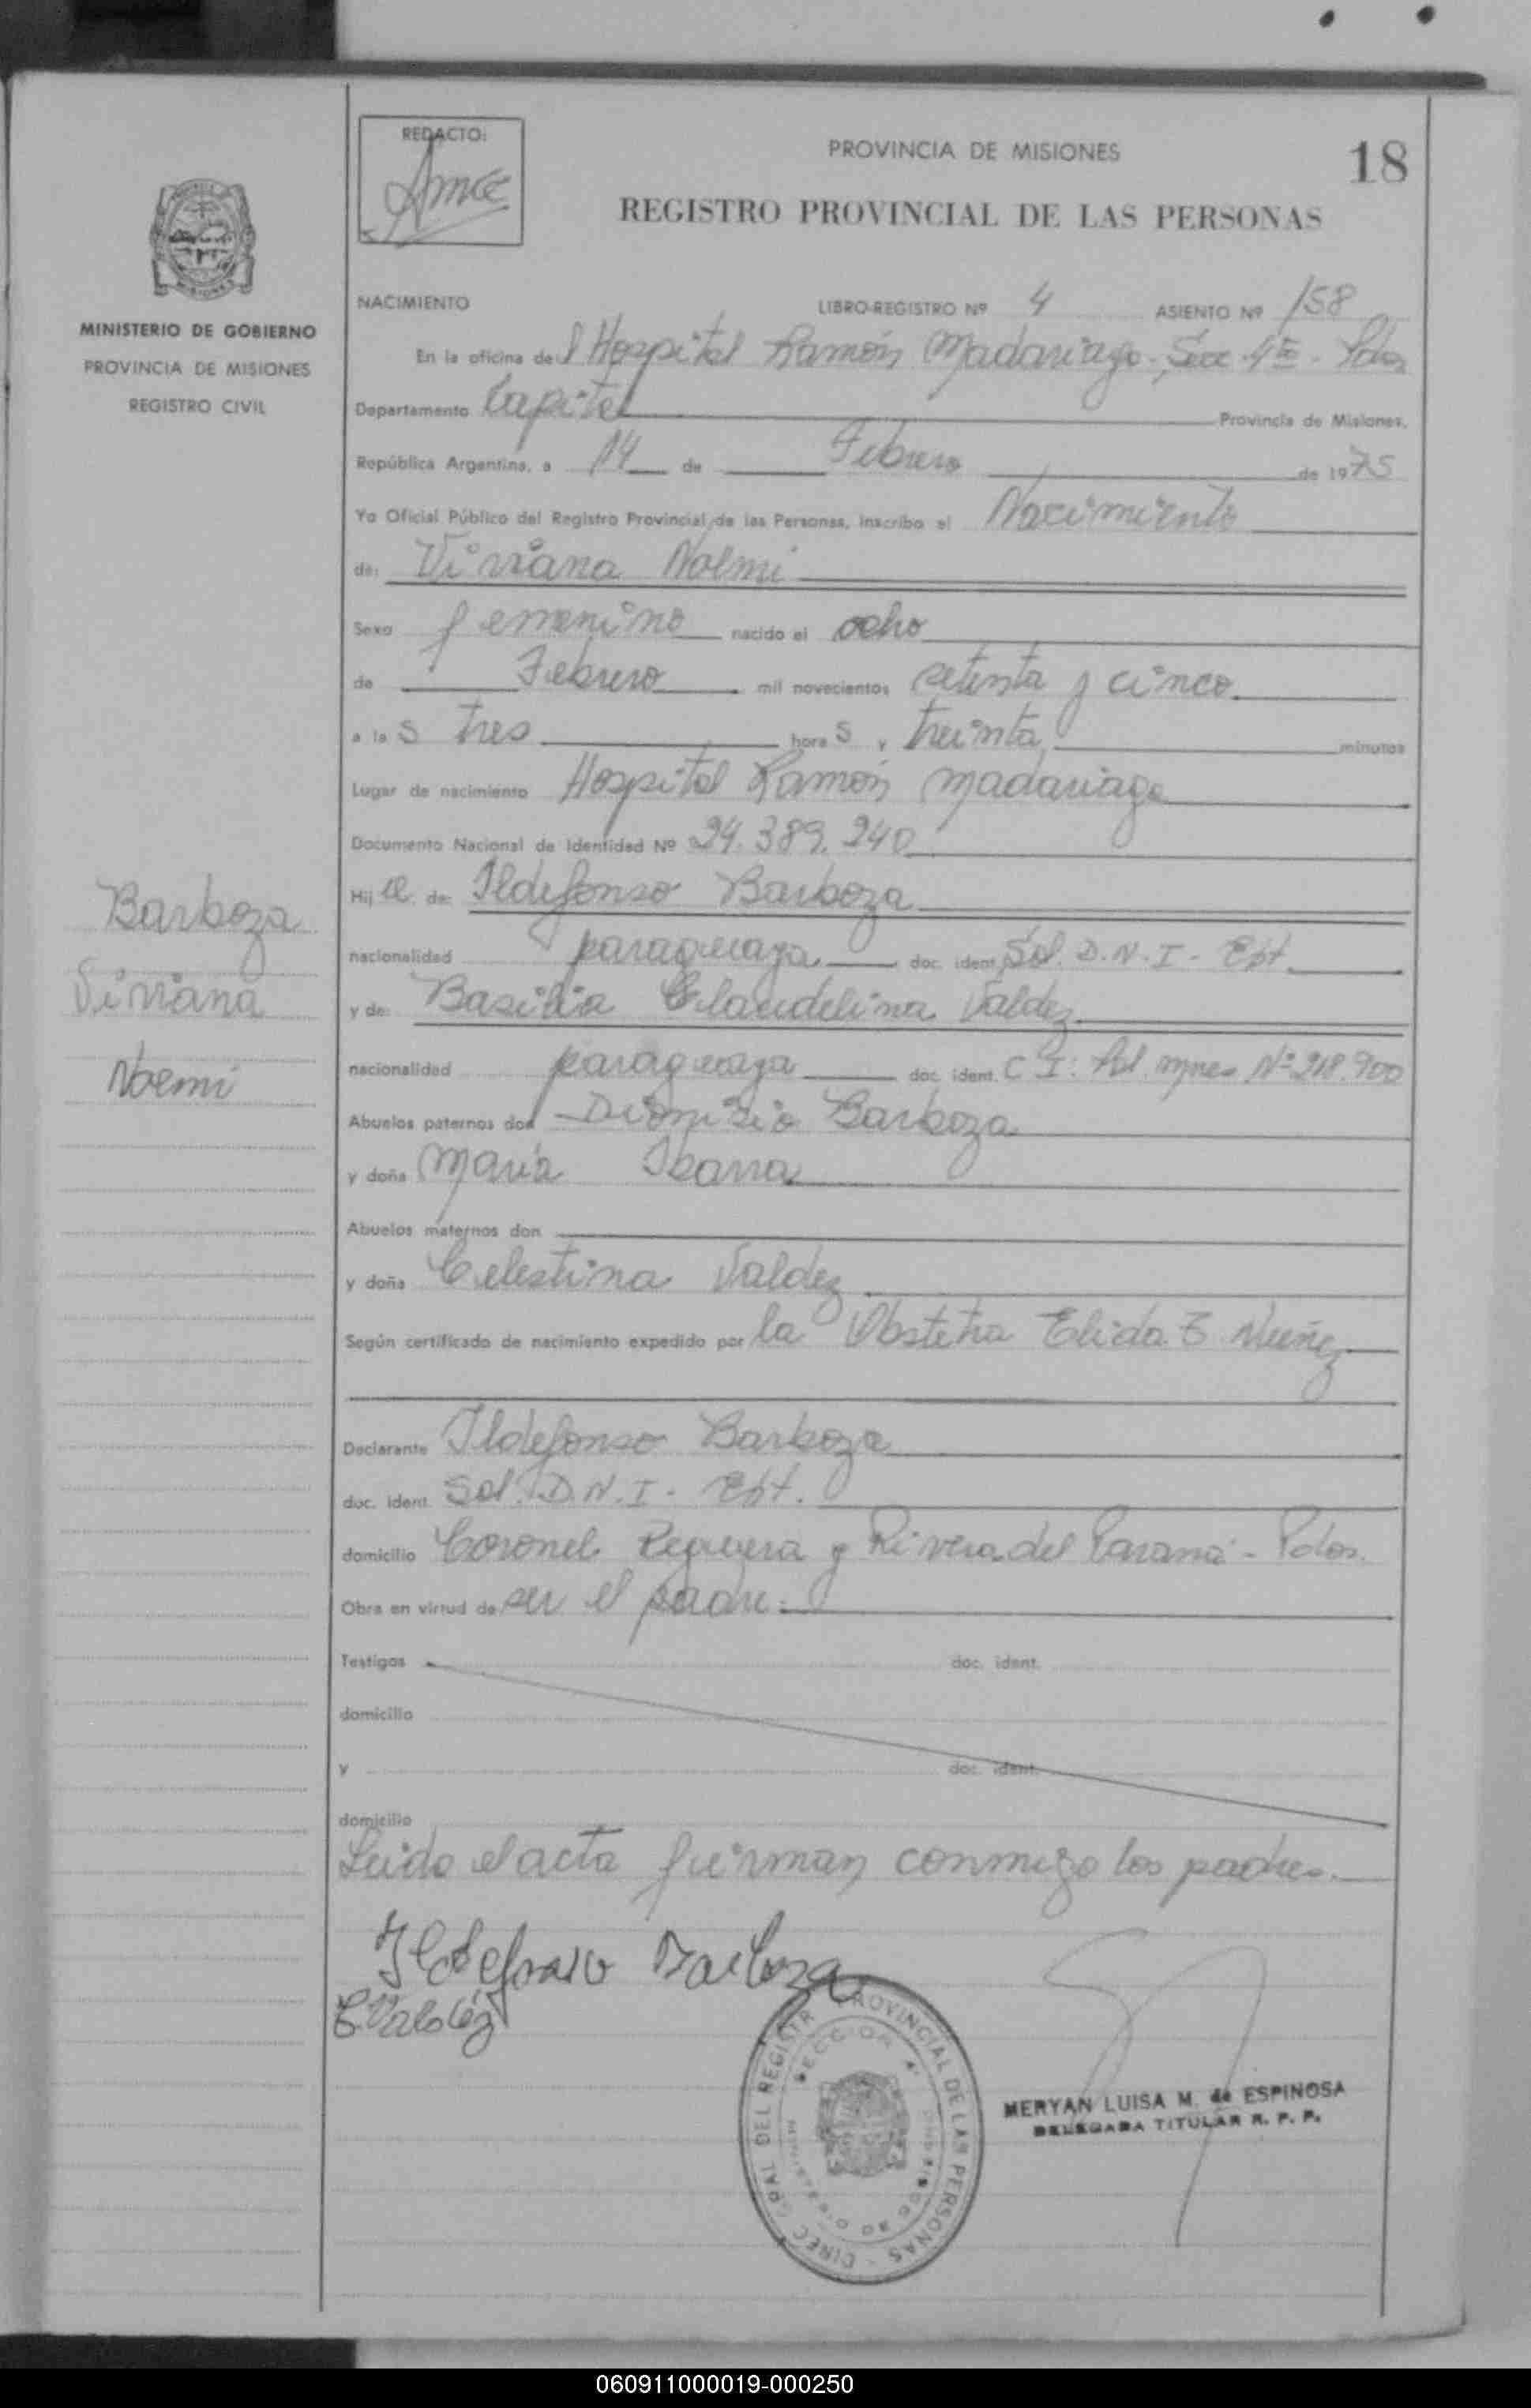 REDACTO:
PROVINCIA DE MISIONES
18
REGISTRO PROVINCIAL DE LAS PERSONAS
MISIONES
MINISTERIO DE GOBIERNO
PROVINCIA DE MISIONES
REGISTRO CIVIL
NACIMIENTO LIBRO-REGISTRO Nº 4 ASIENTO Nº 158
En la oficina del Hospital Ramón Madariaga - Sec. 4ta - Pdas
Departamento Capital Provincia de Misiones,
República Argentina, a 14 de Febrero de 1975
Yo Oficial Público del Registro Provincial de las Personas, inscribo el Nacimiento
de: Viviana Noemi
Sexo femenino nacido el ocho
de Febrero mil novecientos setenta y cinco
a las tres horas y treinta minutos
Lugar de nacimiento Hospital Ramón Madariaga
Documento Nacional de Identidad Nº 24.389.240
Hija de: Ildefonso Barboza
nacionalidad paraguaya doc. ident. Sol. D.N.I. - Ept.
y de: Basilia Claudelina Valdez
nacionalidad paraguaya doc. ident. C.I. Pol. Mnes Nº 218.900
Abuelos paternos don Dionisio Barboza
y doña Maria Ibarra
Abuelos maternos don
y doña Celestina Valdez
Según certificado de nacimiento expedido por la Obstetra Elida E Nuñez
Declarante Ildefonso Barboza
doc. ident. Sol. D.N.I. - Ept.
domicilio Coronel Reguera y Rivera del Paraná - Pdas.
Obra en virtud de ser el padre.
Testigos doc. ident.
domicilio
y doc. ident.
domicilio
Leida el acta firman conmigo los padres.
Barboza
Viviana
Noemi
Ildefonso Barboza
C. Valdéz
DIREC. GRAL. DEL REGISTRO PROVINCIAL DE LAS PERSONAS
SECCION 4ª
MERYAN LUISA M. de ESPINOSA
DELEGADA TITULAR R. P. P.
060911000019-000250